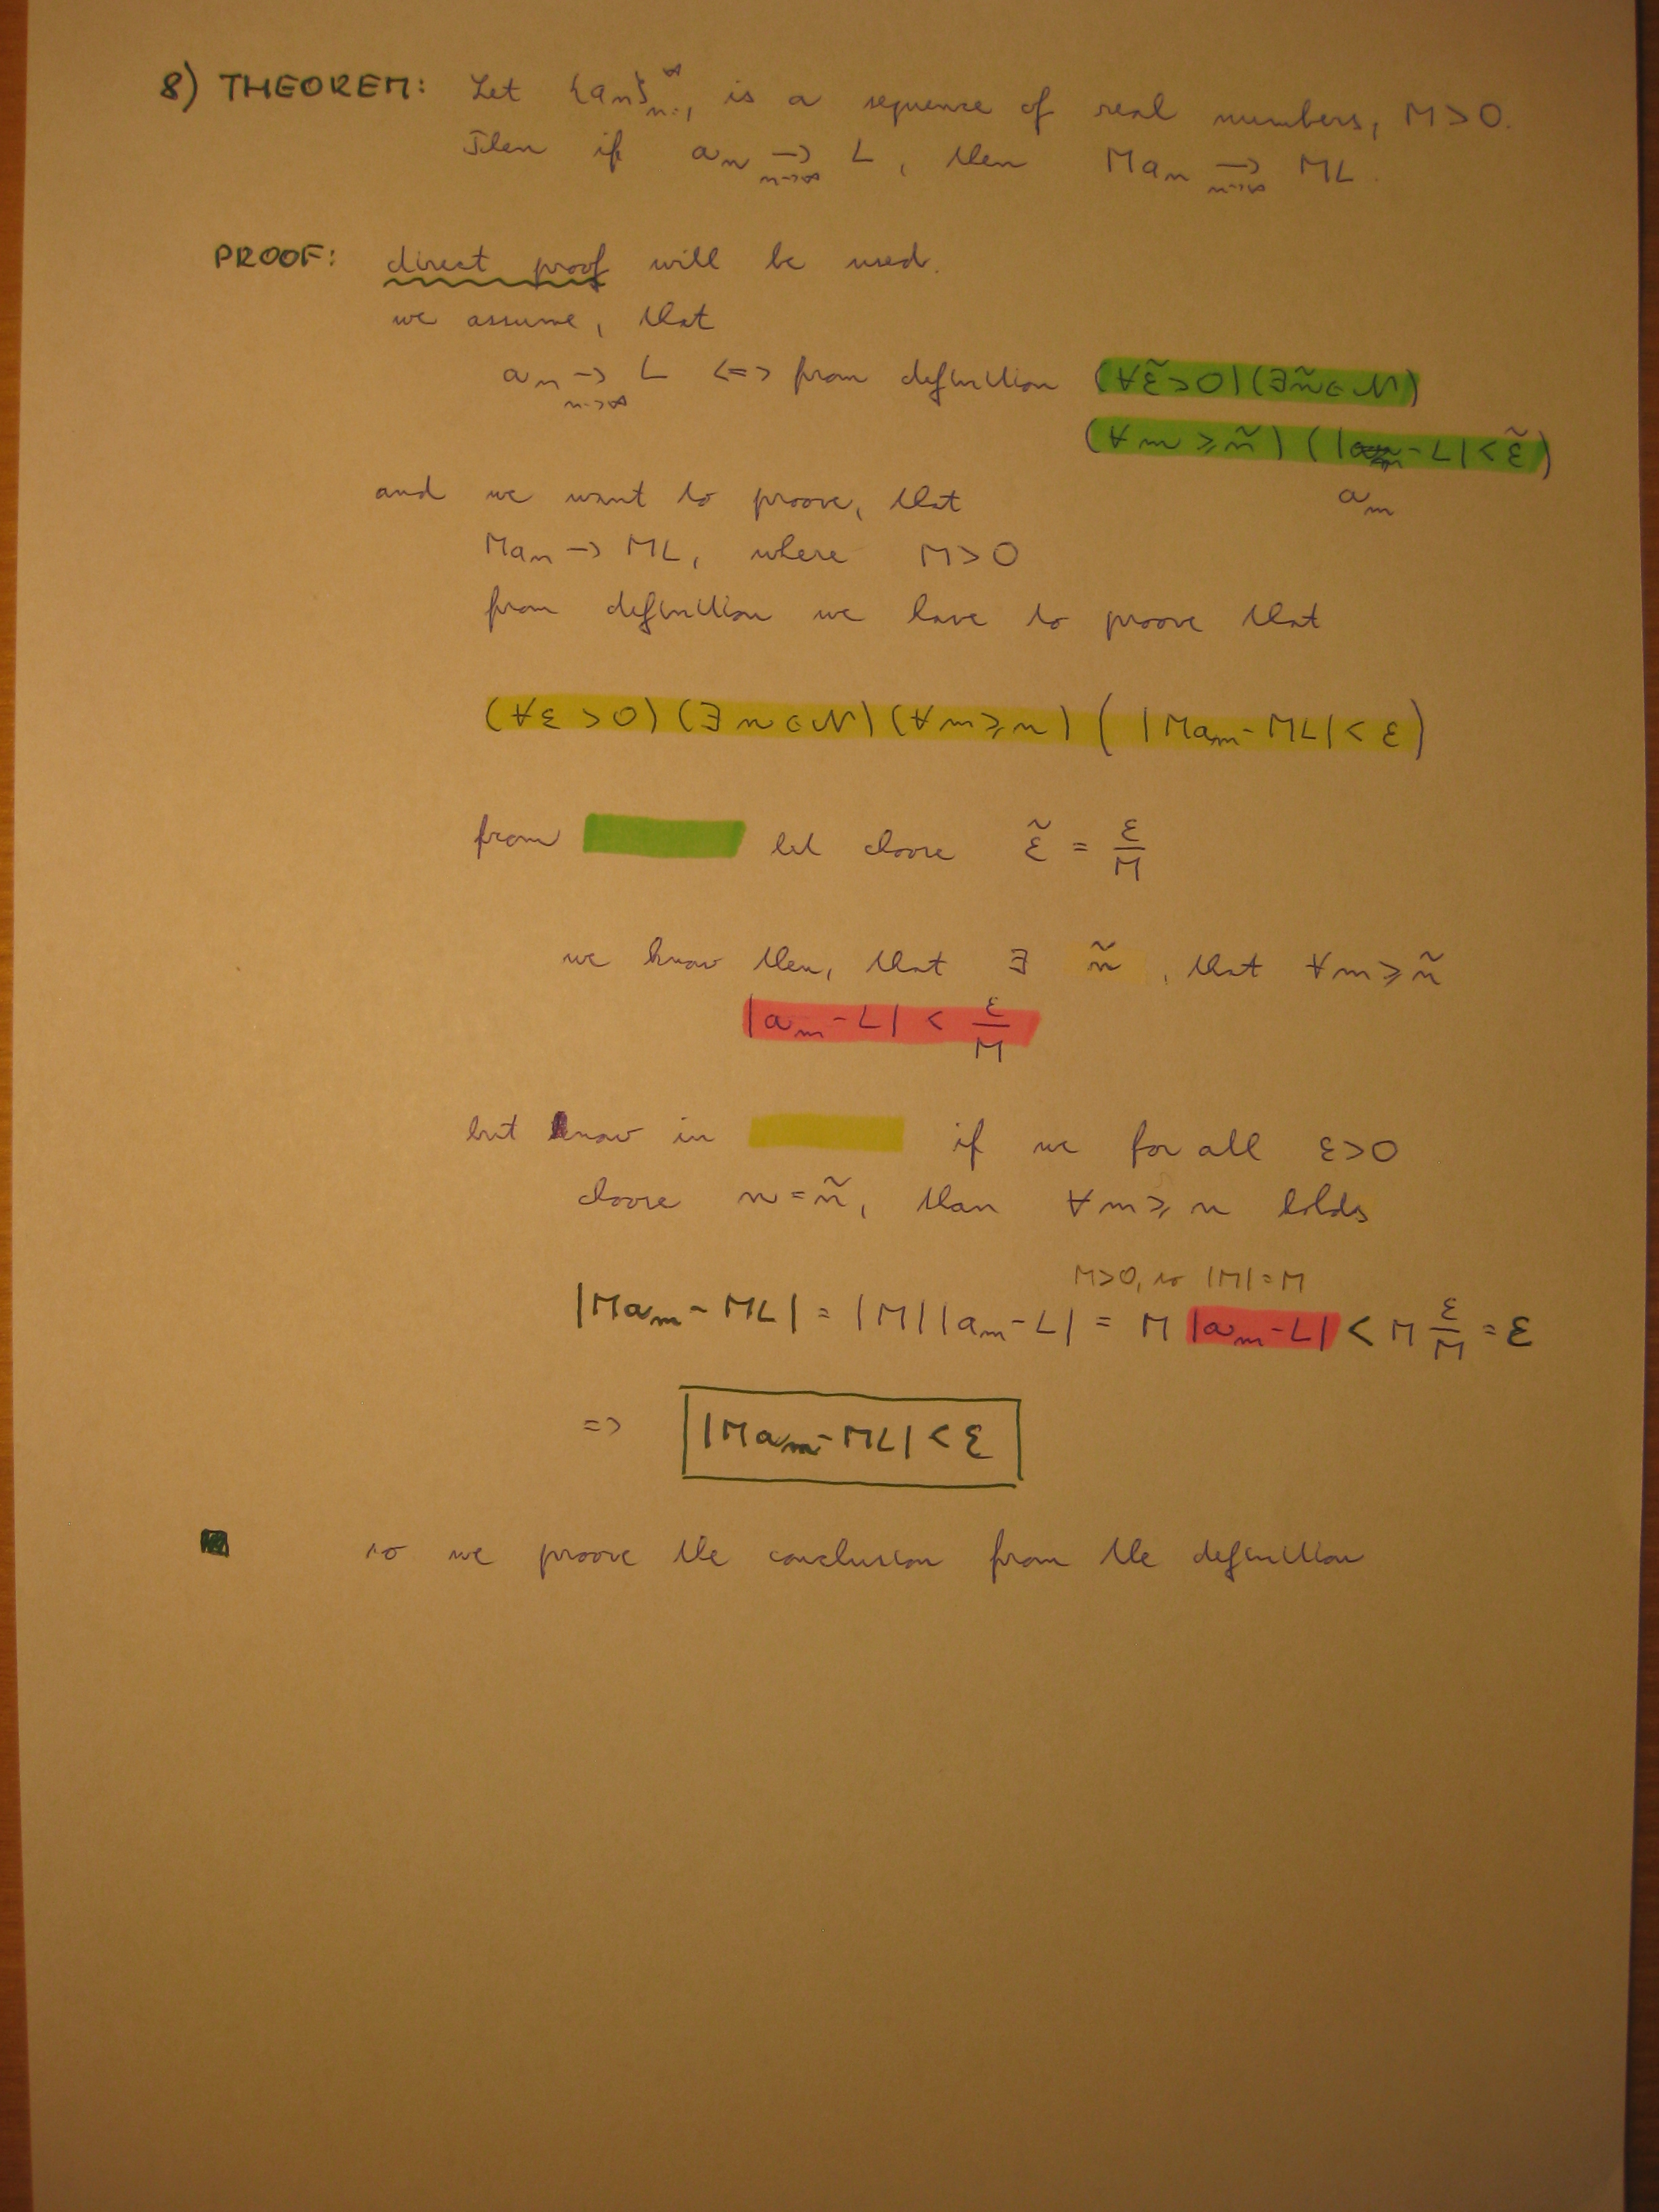 8) THEOREM: Let {aₙ}ₙ₌₁^∞ is a sequence of real numbers, M>0.
Then if aₙ →ₙ→∞ L, then Maₙ →ₙ→∞ ML.
PROOF: direct proof will be used.
we assume, that
aₙ →ₙ→∞ L <=> from definition (∀ε̃>0)(∃ñ∈N)
(∀m≥ñ) (| -L|<ε̃)
aₘ
and we want to proove, that
Maₙ → ML, where M>0
from definition we have to proove that
(∀ε>0)(∃n∈N)(∀m≥n)(|Maₘ-ML|<ε)
from let choose ε̃ = ε/M
we know then, that ∃ ñ, that ∀m≥ñ
|aₘ-L| < ε/M
but know in if we for all ε>0
choose n=ñ, than ∀m≥n holds
M>0, so |M|=M
|Maₘ-ML| = |M||aₘ-L| = M|aₘ-L| < M ε/M = ε
=> |Maₘ-ML|<ε
so we proove the conclusion from the definition